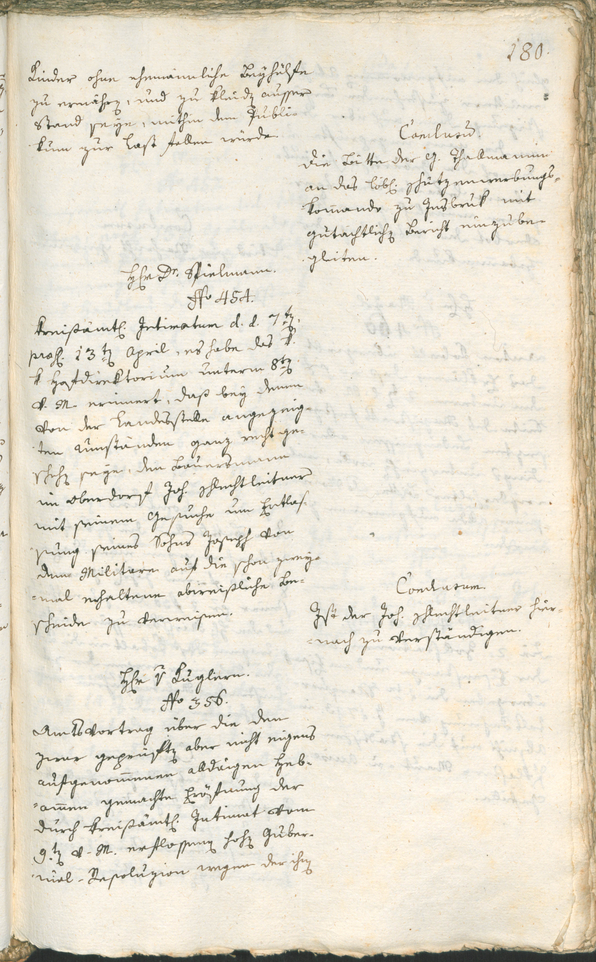 180.
Kinder ohne ehemännliche Beyhülfe
zu ernähren, und zu kleiden ausser
Stand seye, mithin dem Publi-
kum zur Last fallen würde.
Conclusum
die Bitte der G. Thalmannin
an das löbl. Schützenwerbungs-
kommando zu Insbruk mit
gutächtlichen Bericht einzube-
gleiten.
Hr. Dr. Spielmann.
No 454.
Kreisämtl. Intimatum d. d. 7ten,
pras. 13ten April, es habe das k.
k. Hofdirektorium unterm 8ten
v. M. erinnert, daß bey denen
von der Landesstelle angezeig-
ten Umständen ganz recht ge-
schehen seye, den Bauersmann
im Oberdorf Joh. Schlechtleitner
mit seinem Gesuche um Entlas-
sung seines Sohns Joseph von
dem Militare auf die schon zwey-
mal erhaltene abweisliche Be-
scheide zu verweisen.
Conclusum.
Ist der Joh. Schlechtleitner hier-
nach zu verständigen.
Hr. v. Kuglern.
No 356.
Amtsvortrag über die den
zwar geprüften aber nicht eigens
aufgenommenen Heb-
ammen gemachte Eröfnung der
durch Kreisämtl. Intimat vom
9ten v. M. erflossenen hohen Guber-
nial-Resoluzion wegen der ihnen